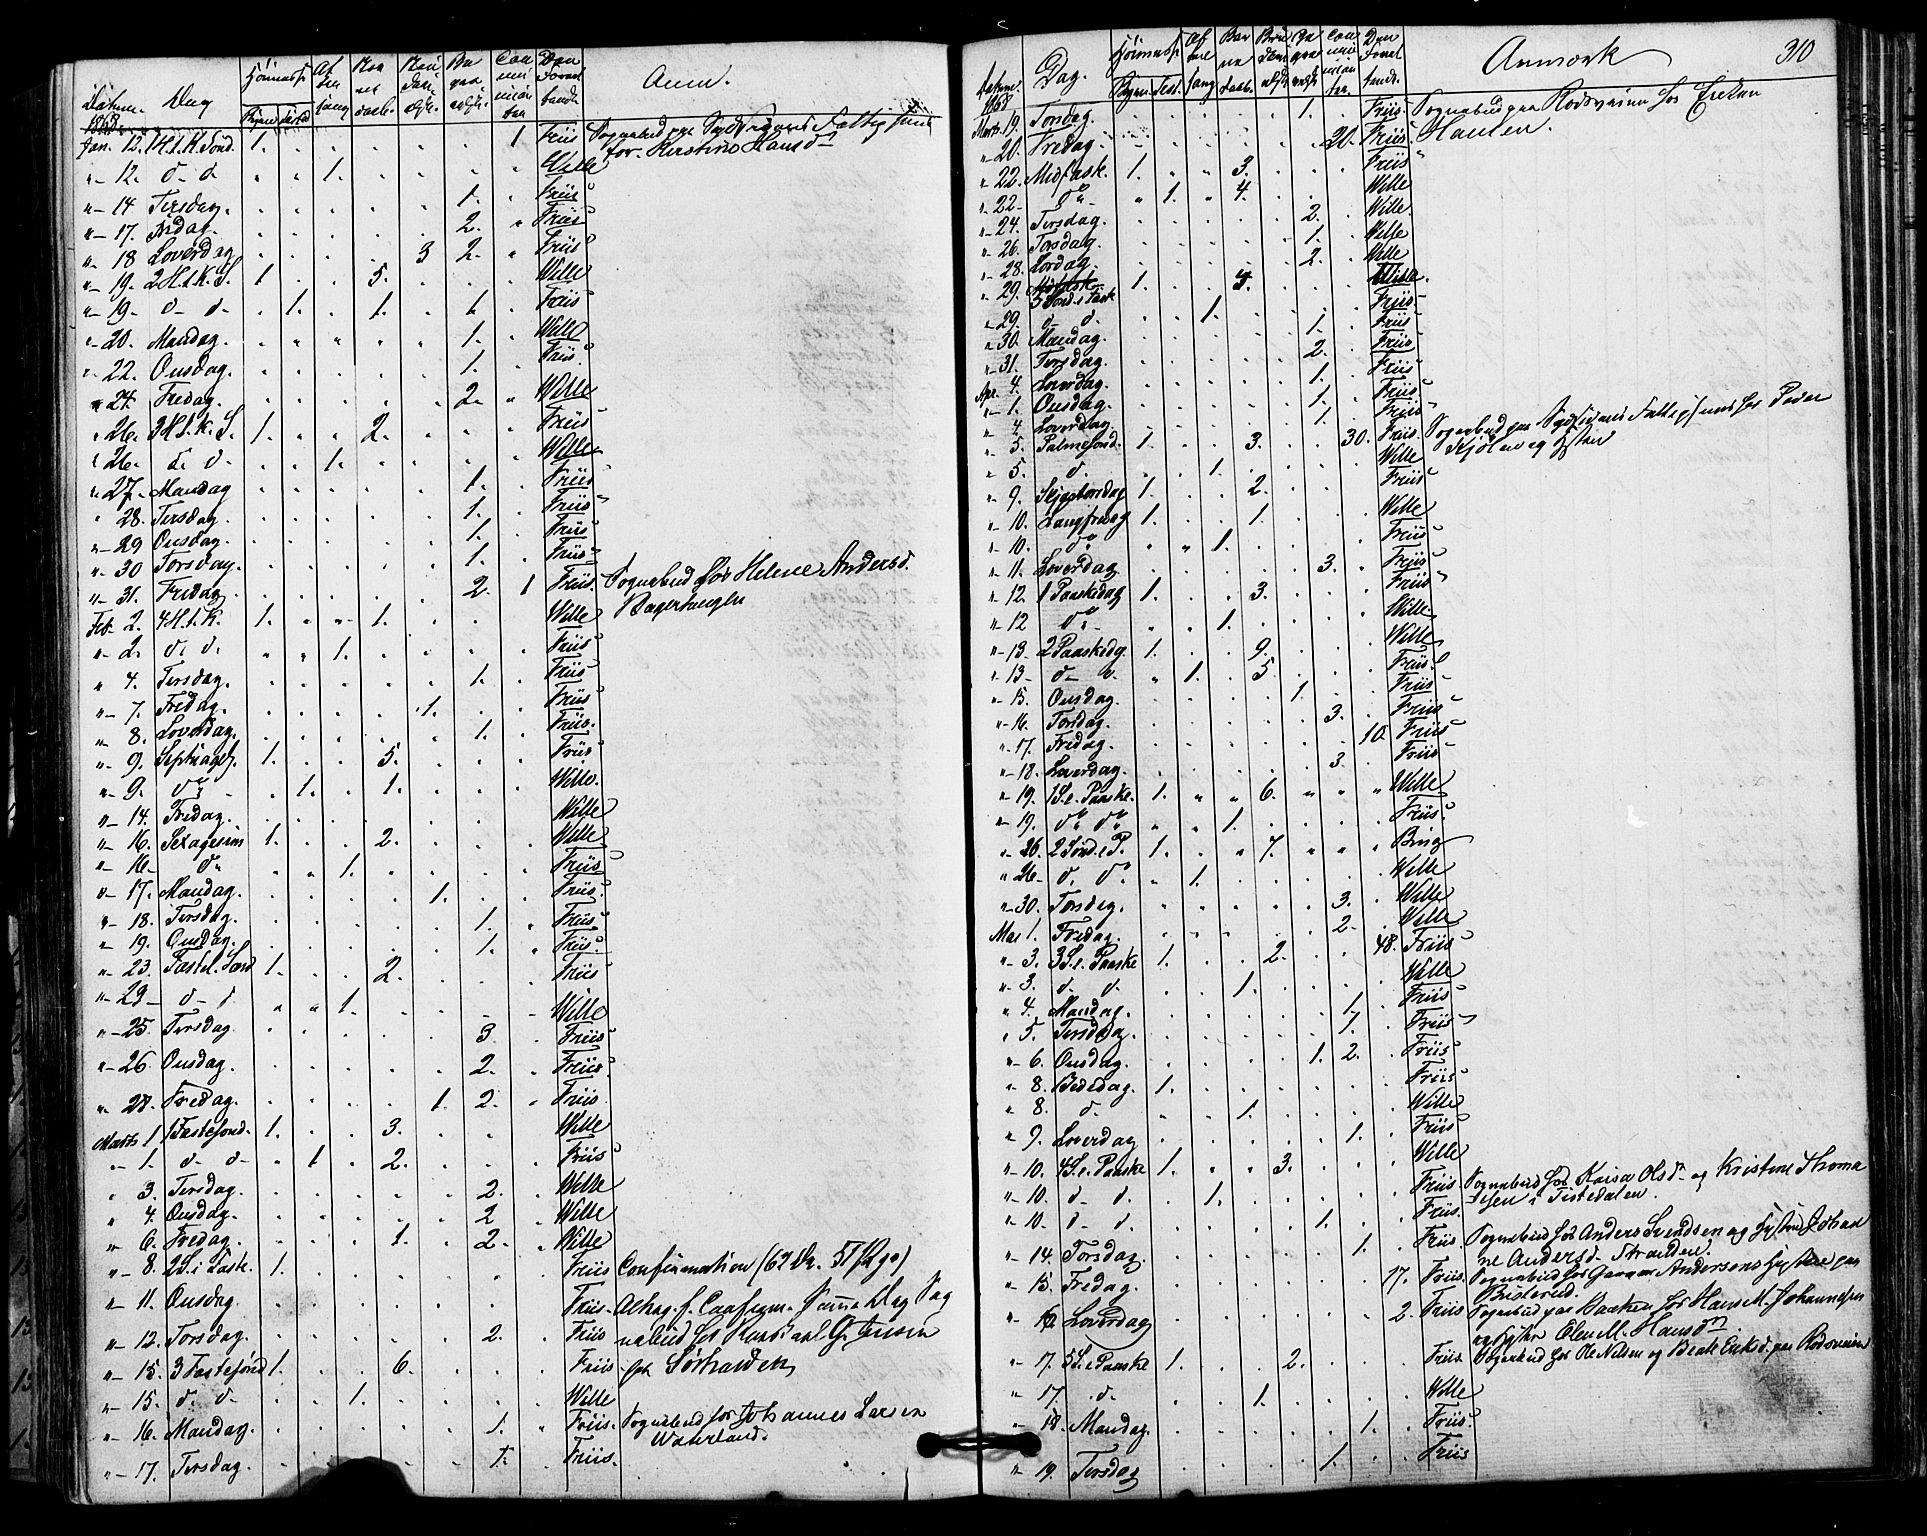 Datum. Dag Anm.
1868.
Jan. 12. 1 H.t.K. Sønd. 1. 1 Friis Sognebud paa
for Kirstine Hansd
" 12. d. d. 1. Wille
" 14 Tirsdag. 1. Friis
" 17. Fredag. 2. Friis
" 18 Løverdag 3 2. Friis
" 19. 2 H.t.K.S. 1 5. Wille
" 19. d. d. 1. 1. 1. Friis
" 20. Mandag. 1. Wille
" 22. Onsdag. 1. Friis
" 24. Fredag. 2. Wille
" 26. 3 H.t.K.S. 1. 2. Friis
" 26. d. d. 1. Wille
" 27. Mandag 1. Friis
" 28. Tirsdag. 1. Friis
" 29 Onsdag. 1. Friis
" 30 Torsdag. 1. Friis
" 31. Fredag. 2. 1 Friis. Sognebud hos Helene Andersd.
Feb. 2. 4 H.t.K. 1. 1. Wille
" 2. d. d. 1. Friis
" 4. Tirsdag. 1. Friis
" 7. Fredag. 1. Friis
" 8. Løverdag. 1. Friis.
" 9. Septuages. 1. 5. Friis
" 9. d. 1. 1. Wille.
" 14. Fredag. Wille
" 16. Sexagesim 1. 2. Wille
" 16. d. 1. Friis
" 17. Mandag. 1. Friis.
" 18. Tirsdag. 1. Friis
" 19. Onsdag. 1. Friis.
" 23. Fastel. Sønd 1. 2. Friis
" 23 d. d 1. Wille
" 25. Tirsdag. 3. Friis
" 26. Onsdag. 2. Friis
" 28. Fredag. 1. 2. Friis.
Marts 1 1 Fastesønd. 1. 3. Wille
" 1. d. d. 1 2. Friis
" 3. Tirsdag. 2. Wille
" 4. Onsdag. 2 Wille
" 6. Fredag. 1. 2. Wille
" 8. 2 S. i Faste. 1. Friis Confirmation (62 Dr. 57 Pger)
" 11. Onsdag. Friis. Altерg. f. Confirm.
" 12. Torsdag. 2. Friis
" 15. 3 Fastesønd 1. 6. Friis
" 15. d. d. 1. Wille
" 16. Mandag. 1. Friis. Sognebud hos Johannes Larsen
Waterland.
" 17. Tirsdag. 1. Friis.
Datum. Dag. Anmærk 310
1868
Marts 19. Torsdag. 1. Friis. Sognebud paa Rødsveien hos Gretan
" 20. Fredag. 20. Friis. Hansen.
" 22. Midfast. 1. 3. Friis
" 22. d. 1. 4. Wille
" 24. Tirsdag. 2. Wille.
" 26. Torsdag. 1. Wille
" 28. Lørdag. 2. Wille
" 29. 5 Sønd. i Fast 1. 4.
" 29. d. d. 1. Friis
" 30. Mandag. 1. Friis
" 31. Tirsdag. 2. Friis
Apr. 4. Løverdag. 1. Friis
" 1. Onsdag. 1. Friis
" 4. Løverdag. 1. Friis
" 5. Palmesønd. 1. 3. 30. Friis. Sognebud paa hos Peder
" 5. d. 1. Wille
" 9. Skjærtorsdag 1. 2. Friis
" 10. Langfredag 1. 1. Wille
" 10. d. 1. Friis
" 11. Løverdag 3. Friis
" 12. 1 Paaskedag 1. 3. Friis
" 12 d. 1. Wille.
" 13. 2 Paaskedg. 1. 9. Wille
" 13. d. d. 1. 5. Friis.
" 15. Onsdag. 1. Friis
" 16. Torsdag. 3. Friis
" 17. Fredag. 10. Friis
" 18. Løverdag. 3. Friis
" 19. 1 S. e. Paaske. 1. 6. Wille
" 19. d. d. 1. Friis.
" 26. 2 Sønd. e P. 1. 7. Bing
" 26. d. d. 1. Wille
" 30. Torsdag. 3. Wille
Mai 1. Fredag. 2. Wille
" 3. 3 S. e. Paaske 1. 2. 48. Friis
" 3. d. d. 1. Wille
" 4. Mandag. 1. Friis
" 5. Tirsdag. 1. Friis
" 6. Onsdag. 1. 2. Friis
" 8. Bededag. 1. Friis
" 8. d. 1. Wille
" 9. Løverdag 1. Friis
" 10. 4 S. e. Paaske 1. 3. Wille
" 10. d. d. 1. Friis. Sognebud hos Karisa Olsd og Kristine Thoma
" 10. d. d. 1. Friis. sen i Tistedalen.
" 14. Torsdag. 1. Friis. Sognebud hos Anders Svendsen og
ne Andersd. Stranden.
" 15. Fredag. 17. Friis. Sognebud hos Andersens Hustru paa
" 16 Løverdag 2. Friis Sognebud paa Bakken hos Hans M. Johannesen
og Hstr Olea M. Hansd.
" 17. 5 S. e Paaske 1. 2. Friis. Sognebud hos Ole Nilsen og Beate Eriksd. paa Rødsveien
" 17. d. 1. Wille
" 18. Mandag. 1. Friis.
" 19. Tirsdag 1. Friis